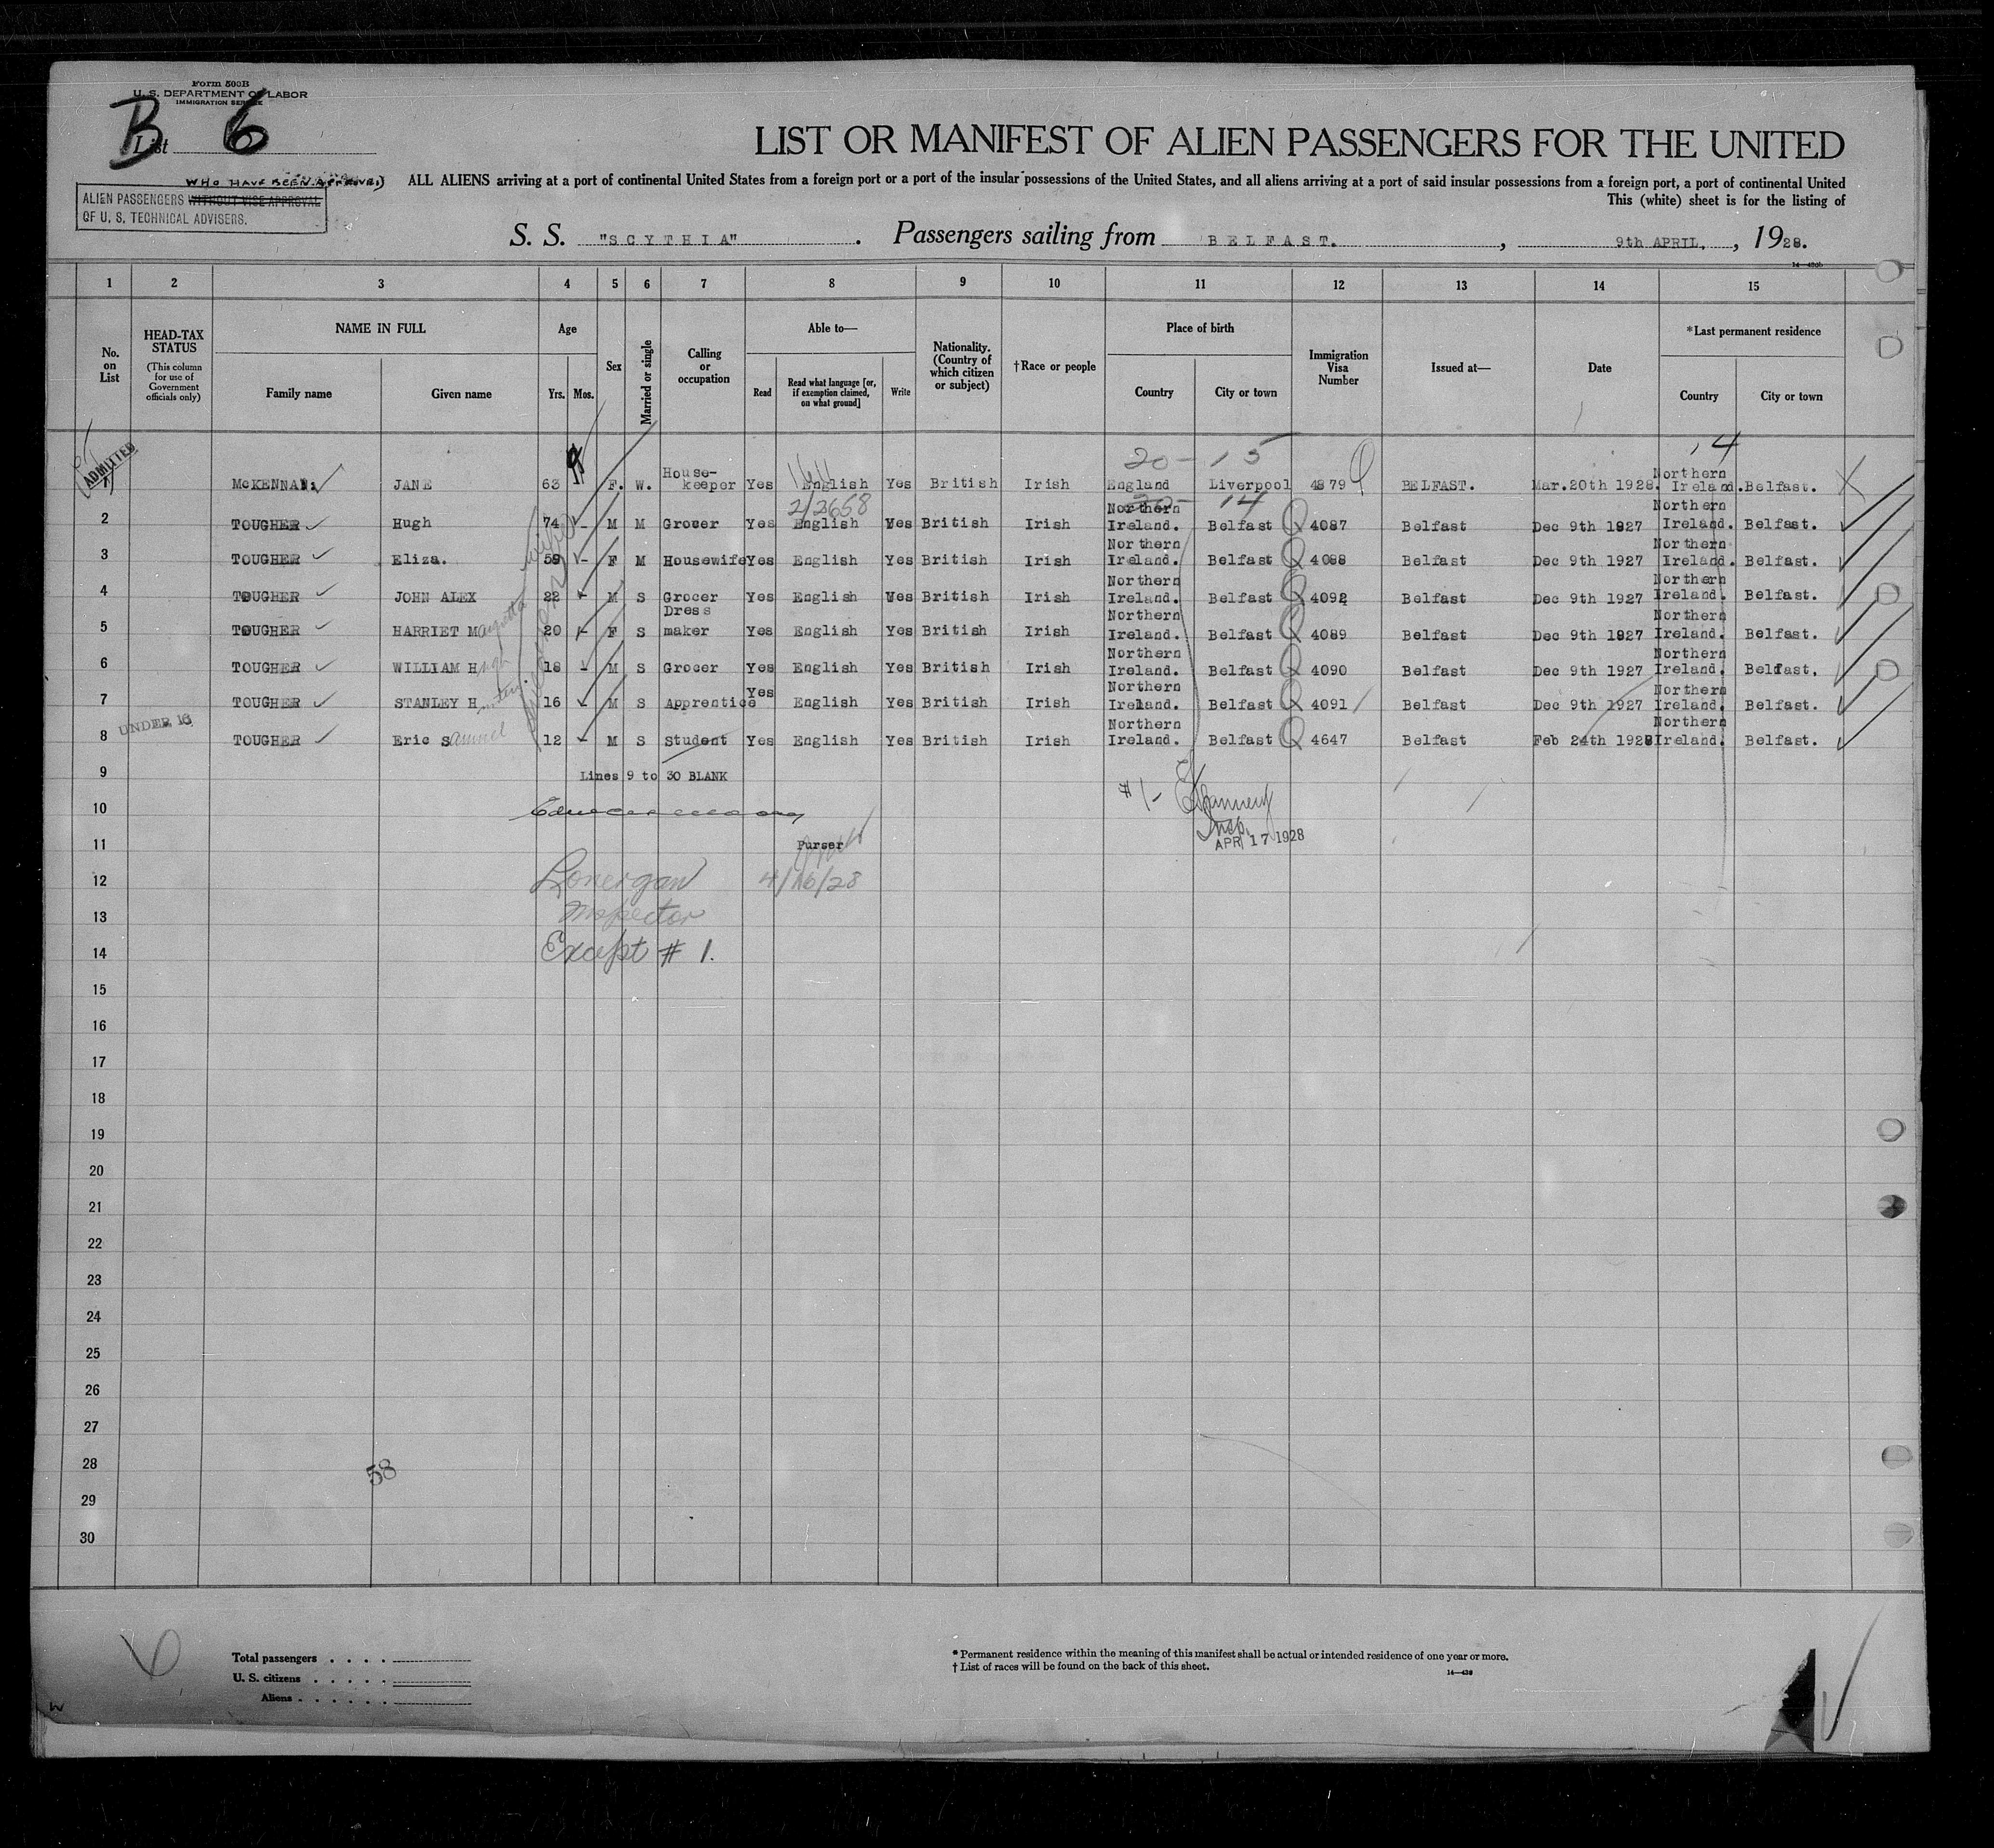 Form 500B
U. S. DEPARTMENT OF LABOR
IMMIGRATION SERVICE
B List 6
LIST OR MANIFEST OF ALIEN PASSENGERS FOR THE UNITED
WHO HAVE BEEN APPROVED
ALIEN PASSENGERS WITHOUT VISE APPROVAL
OF U. S. TECHNICAL ADVISERS.
ALL ALIENS arriving at a port of continental United States from a foreign port or a port of the insular possessions of the United States, and all aliens arriving at a port of said insular possessions from a foreign port, a port of continental United
This (white) sheet is for the listing of
S. S. "SCYTHIA" . Passengers sailing from BELFAST. , 9th APRIL, , 1928.
14—430b
1 2 3 4 5 6 7 8 9 10 11 12 13 14 15
No. on List
HEAD-TAX STATUS
(This column for use of Government officials only)
NAME IN FULL
Family name Given name
Age
Yrs. Mos.
Sex
Married or single
Calling or occupation
Able to—
Read
Read what language [or, if exemption claimed, on what ground]
Write
Nationality. (Country of which citizen or subject)
†Race or people
Place of birth
Country City or town
Immigration Visa Number
Issued at—
Date
*Last permanent residence
Country City or town
ADMITTED
20- 15
14
1 McKENNA. JANE 63 F. W. House-keeper Yes English Yes British Irish England Liverpool 4879 BELFAST. Mar.20th 1928. Northern Ireland. Belfast.
2/2658
20- 14
2 TOUGHER Hugh 74 - M M Grocer Yes English Yes British Irish Northern Ireland. Belfast Q 4087 Belfast Dec 9th 1927 Northern Ireland. Belfast.
3 TOUGHER Eliza. 59 - F M Housewife Yes English Yes British Irish Northern Ireland. Belfast Q 4088 Belfast Dec 9th 1927 Northern Ireland. Belfast.
4 TOUGHER JOHN ALEX 22 - M S Grocer Yes English Yes British Irish Northern Ireland. Belfast Q 4092 Belfast Dec 9th 1927 Northern Ireland. Belfast.
5 TOUGHER HARRIET M 20 - F S Dress maker Yes English Yes British Irish Northern Ireland. Belfast Q 4089 Belfast Dec 9th 1927 Northern Ireland. Belfast.
6 TOUGHER WILLIAM Hugh 18 - M S Grocer Yes English Yes British Irish Northern Ireland. Belfast Q 4090 Belfast Dec 9th 1927 Northern Ireland. Belfast.
7 TOUGHER STANLEY H 16 - M S Apprentice Yes English Yes British Irish Northern Ireland. Belfast Q 4091 Belfast Dec 9th 1927 Northern Ireland. Belfast.
UNDER 16
8 TOUGHER Eric Samuel 12 - M S Student Yes English Yes British Irish Northern Ireland. Belfast Q 4647 Belfast Feb 24th 1928 Northern Ireland. Belfast.
9 Lines 9 to 30 BLANK
10 # 1-
Insp.
11 Purser APR 17 1928
12 Lonergan 4/16/28
13 Inspector
14 Except # 1.
15
16
17
18
19
20
21
22
23
24
25
26
27
28
58
29
30
6
Total passengers
U. S. citizens
Aliens
* Permanent residence within the meaning of this manifest shall be actual or intended residence of one year or more.
† List of races will be found on the back of this sheet.
14—430